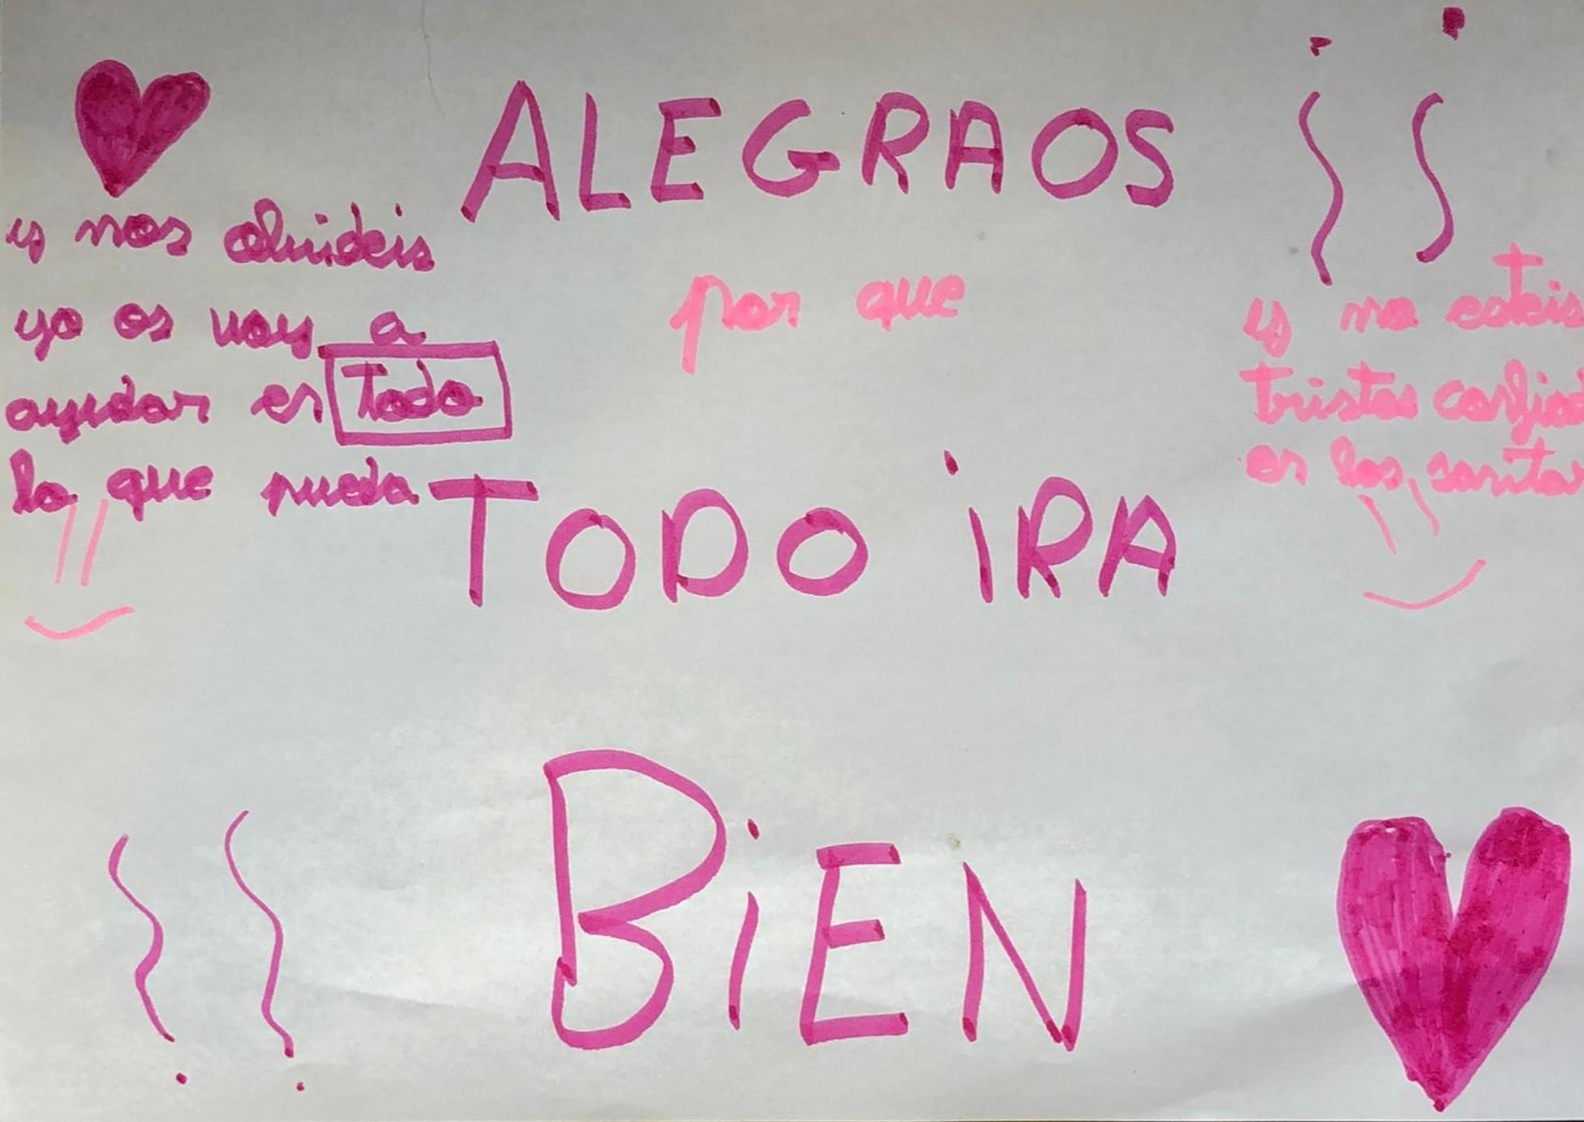 ALEGRAOS
por que
TODO iRA
BiEN
y nos olvideis
yo os voy a
ayudar en Todo
lo que pueda
y no esteis
tristes confiad
en los sanitar